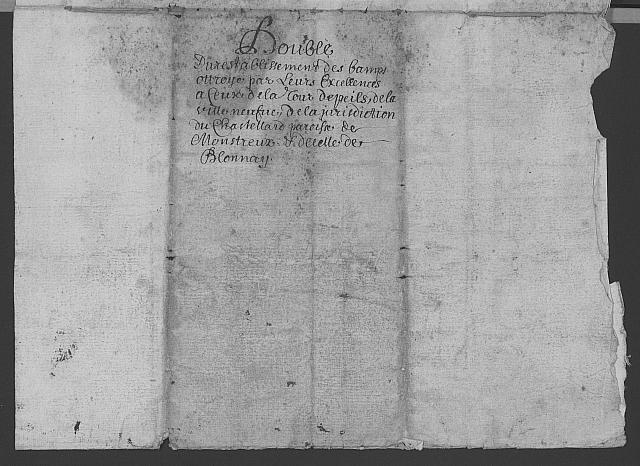 Double
Du restablissement des bamps
ottroyé par Leurs Excellences
a Ceux de la Tour de peils, de la
ville neufue, de la jurisdiction
du Chastellard paroisse de
Monstreux & de celle de
Blonnay.